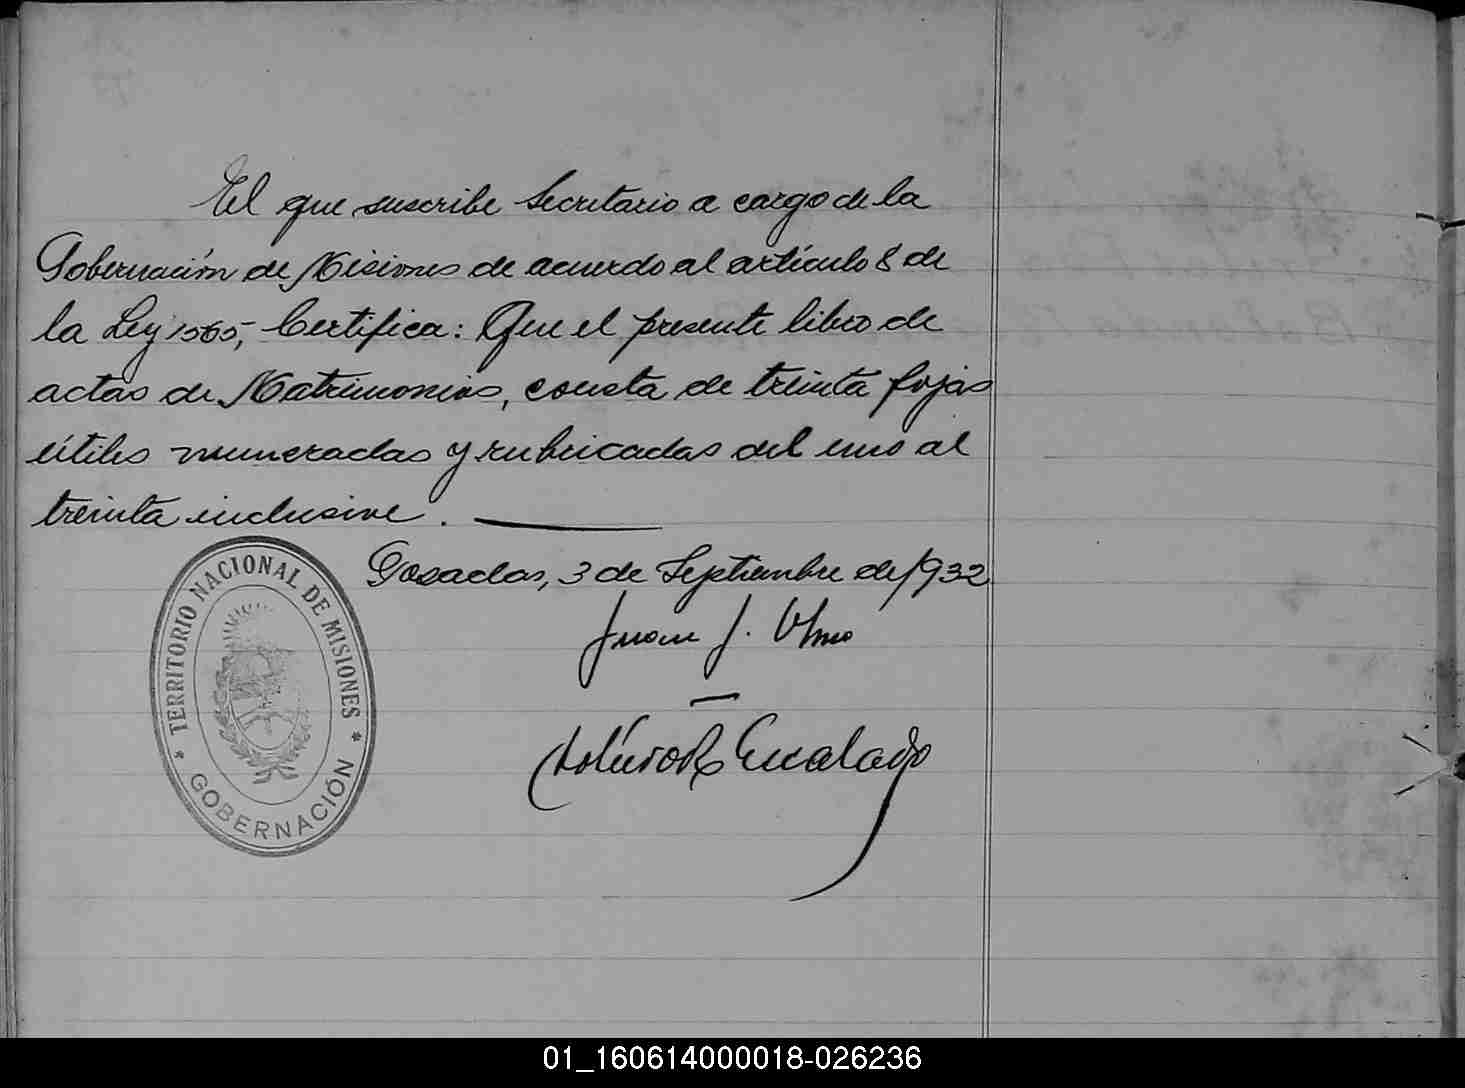 El que suscribe Secretario a cargo de la
Gobernación de Misiones de acuerdo al artículo 8 de
la Ley 1565, Certifica: Que el presente libro de
actas de Matrimonios, consta de treinta fojas
útiles numeradas y rubricadas del uno al
treinta inclusive.
Posadas, 3 de Septiembre de 1932
Juan J. Olmo
TERRITORIO NACIONAL DE MISIONES
* GOBERNACIÓN *
01_160614000018-026236